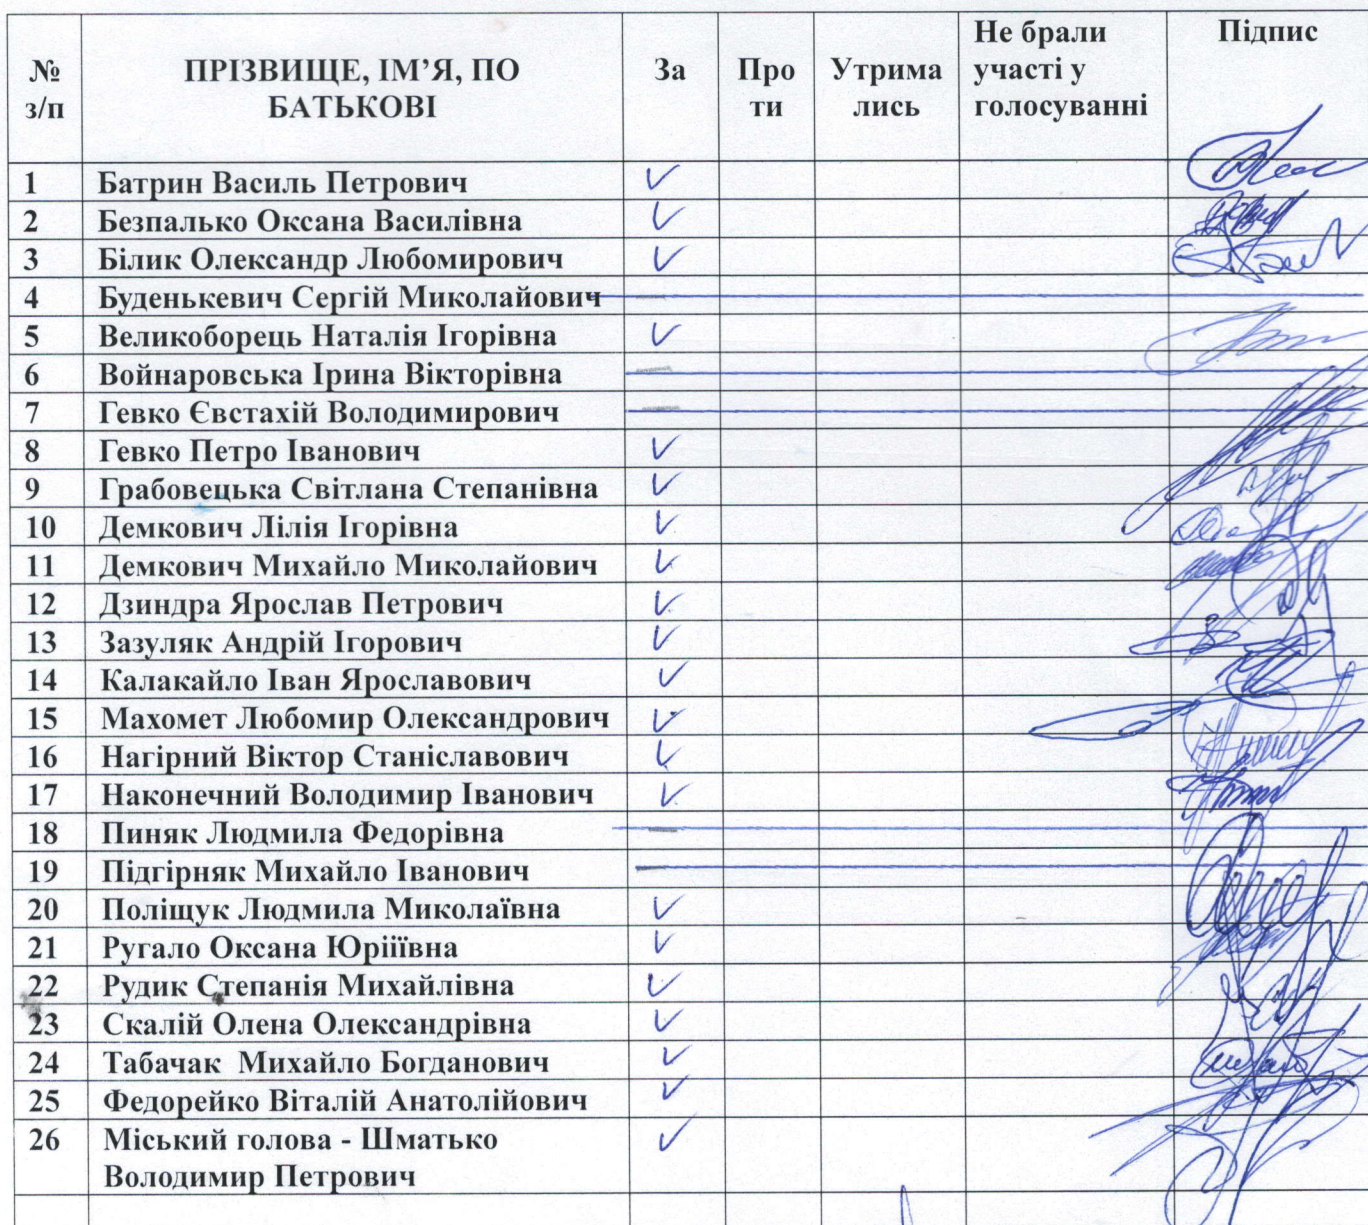 № з/п ПРІЗВИЩЕ, ІМ’Я, ПО БАТЬКОВІ За Про ти Утрима лись Не брали участі у голосуванні Підпис
1 Батрин Василь Петрович ✓
2 Безпалько Оксана Василівна ✓
3 Білик Олександр Любомирович ✓
4 Буденькевич Сергій Миколайович
5 Великоборець Наталія Ігорівна ✓
6 Войнаровська Ірина Вікторівна
7 Гевко Євстахій Володимирович
8 Гевко Петро Іванович ✓
9 Грабовецька Світлана Степанівна ✓
10 Демкович Лілія Ігорівна ✓
11 Демкович Михайло Миколайович ✓
12 Дзиндра Ярослав Петрович ✓
13 Зазуляк Андрій Ігорович ✓
14 Калакайло Іван Ярославович ✓
15 Махомет Любомир Олександрович ✓
16 Нагірний Віктор Станіславович ✓
17 Наконечний Володимир Іванович ✓
18 Пиняк Людмила Федорівна
19 Підгірняк Михайло Іванович
20 Поліщук Людмила Миколаївна ✓
21 Ругало Оксана Юріїівна ✓
22 Рудик Степанія Михайлівна ✓
23 Скалій Олена Олександрівна ✓
24 Табачак Михайло Богданович ✓
25 Федорейко Віталій Анатолійович ✓
26 Міський голова - Шматько ✓
Володимир Петрович